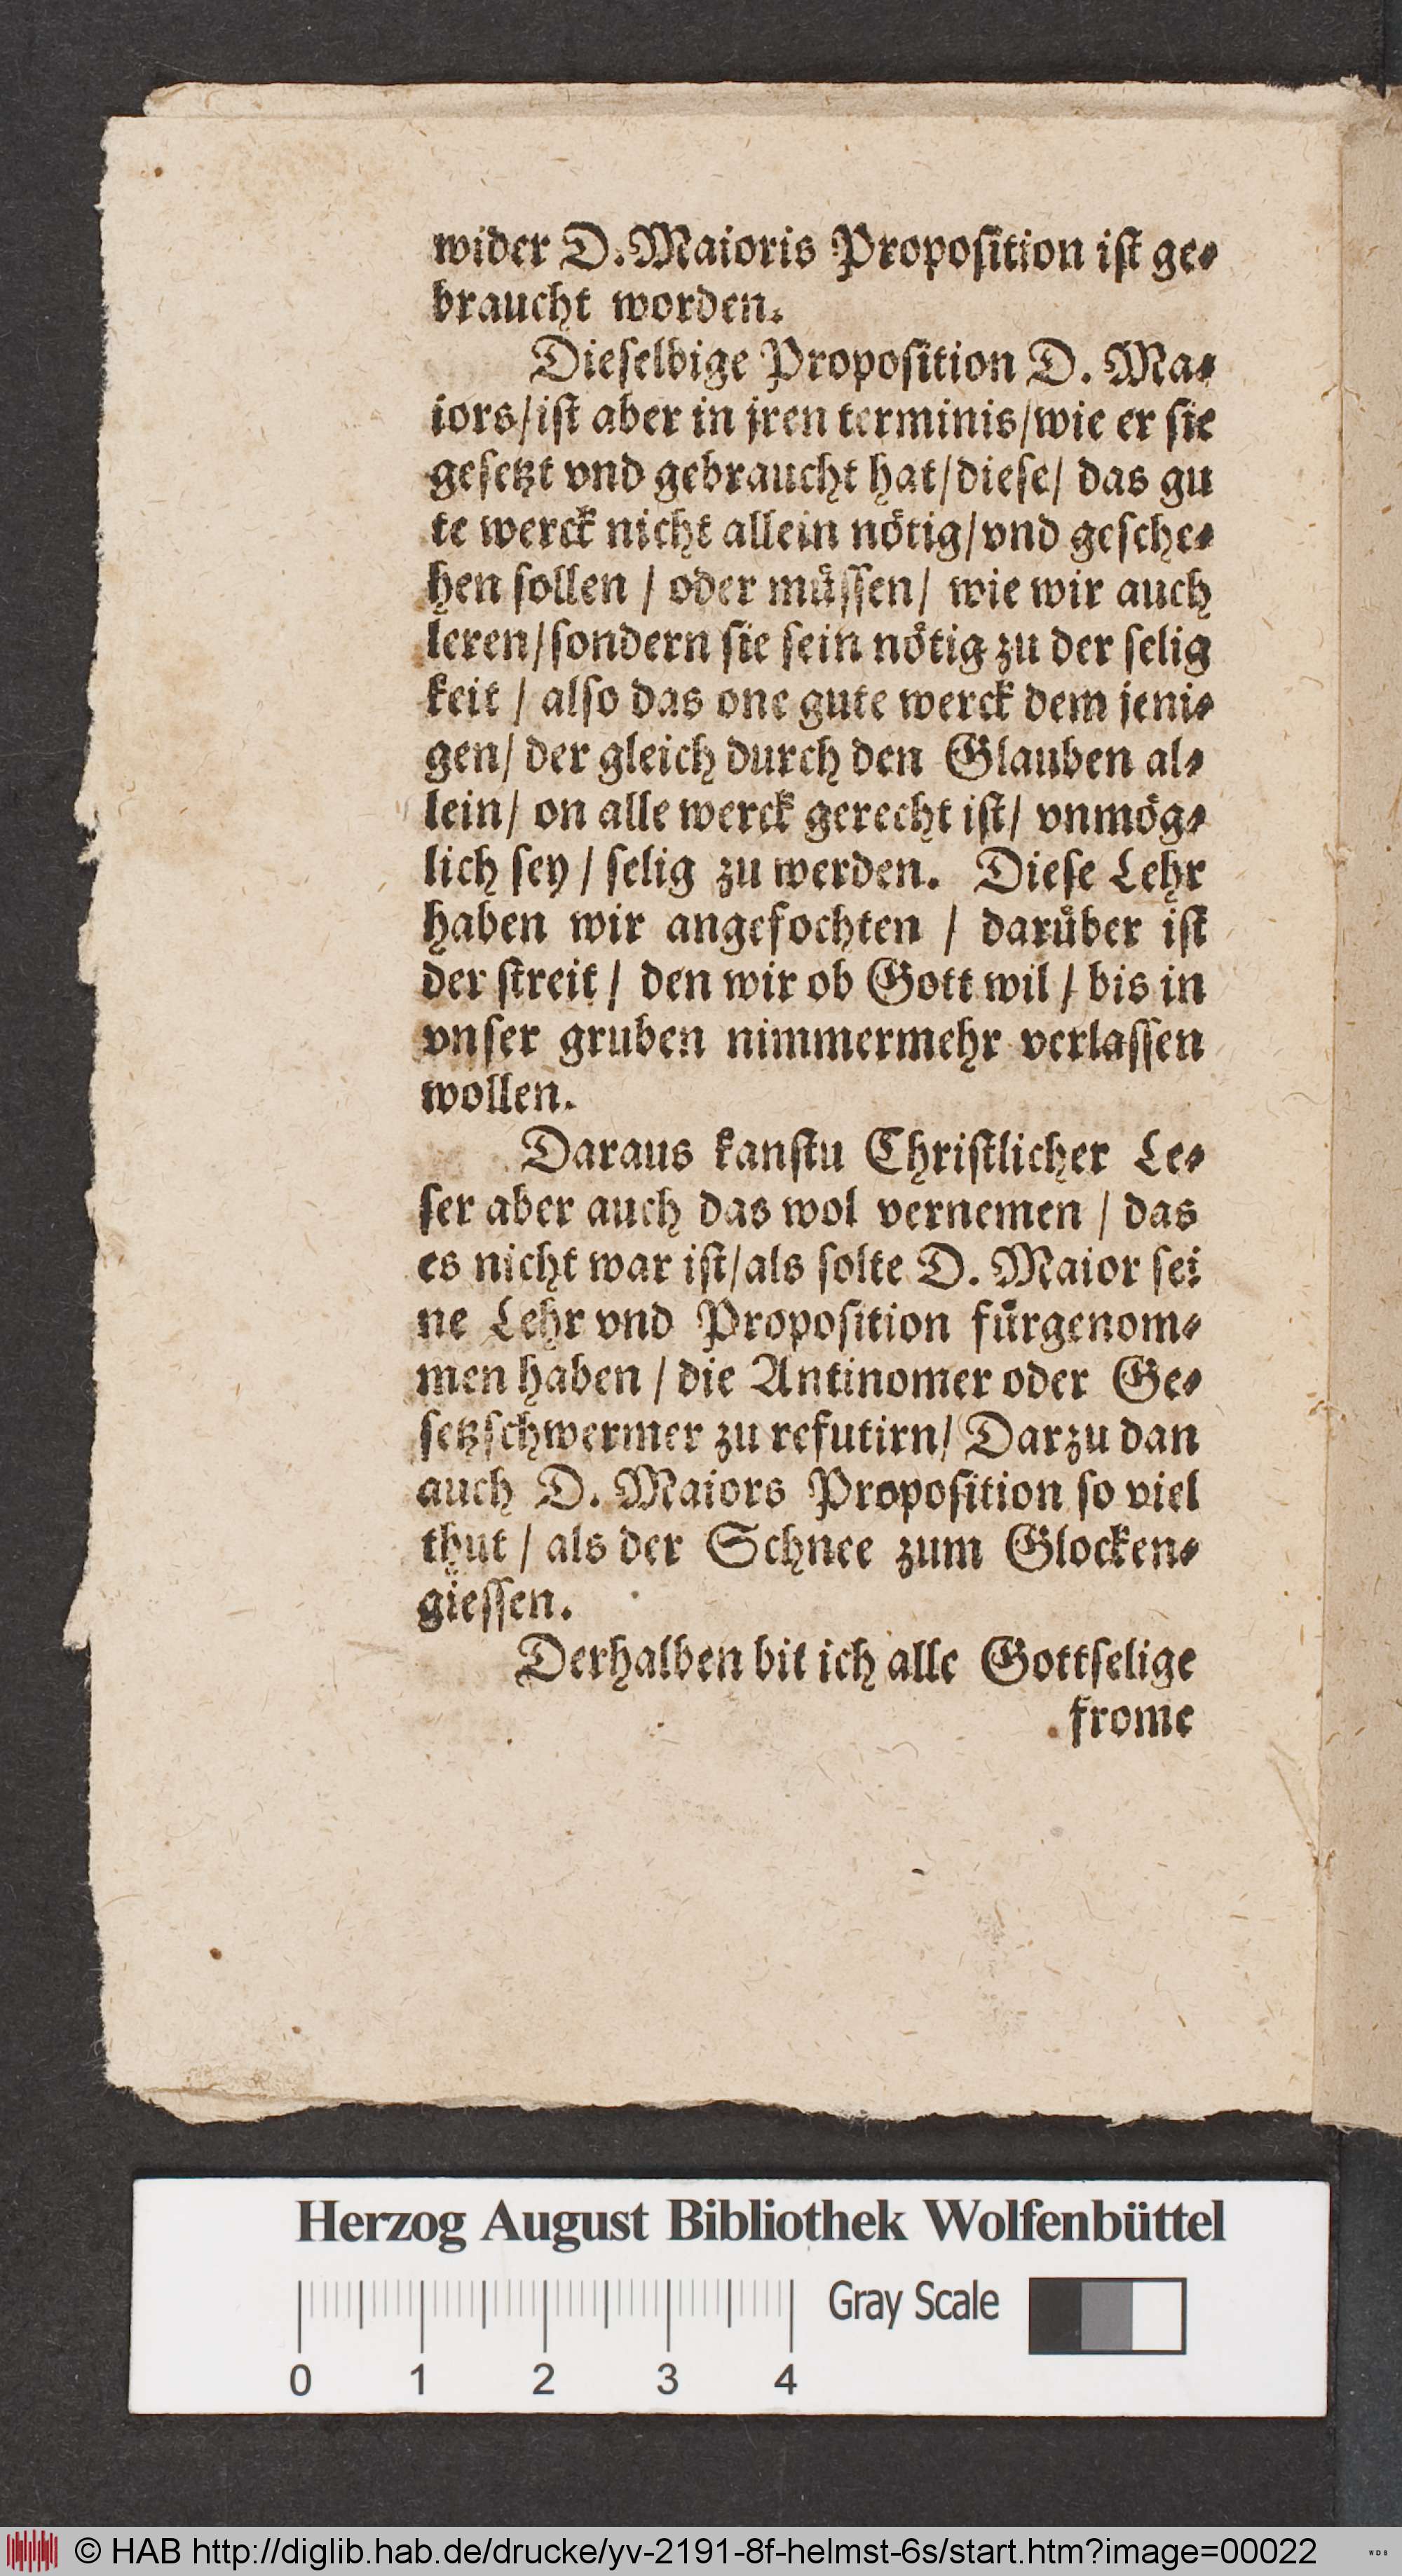 wider D. Maioris Proposition ist ge⸗
braucht worden.
Dieselbige Proposition D. Ma⸗
iors/ist aber in jren terminis/wie er sie
gesetzt vnd gebraucht hat/diese/ das gu
te werck nicht allein nötig/vnd gesche⸗
hen sollen / oder müssen/ wie wir auch
leren/sondern sie sein nötig zu der selig
keit / also das one gute werck dem jeni⸗
gen/ der gleich durch den Glauben al⸗
lein/ on alle werck gerecht ist/ vnmög⸗
lich sey / selig zu werden. Diese Lehr
haben wir angefochten / darüber ist
der streit / den wir ob Gott wil / bis in
vnser gruben nimmermehr verlassen
wollen.
Daraus kanstu Christlicher Le⸗
ser aber auch das wol vernemen / das
es nicht war ist/als solte D. Maior sei
ne Lehr vnd Proposition fürgenom⸗
men haben / die Antinomer oder Ge⸗
setzschwermer zu refutirn/ Darzu dan
auch D. Maiors Proposition so viel
thut / als der Schnee zum Glocken⸗
giessen.
Derhalben bit ich alle Gottselige
frome
Herzog August Bibliothek Wolfenbüttel
Gray Scale
0 1 2 3 4
© HAB http://diglib.hab.de/drucke/yv-2191-8f-helmst-6s/start.htm?image=00022